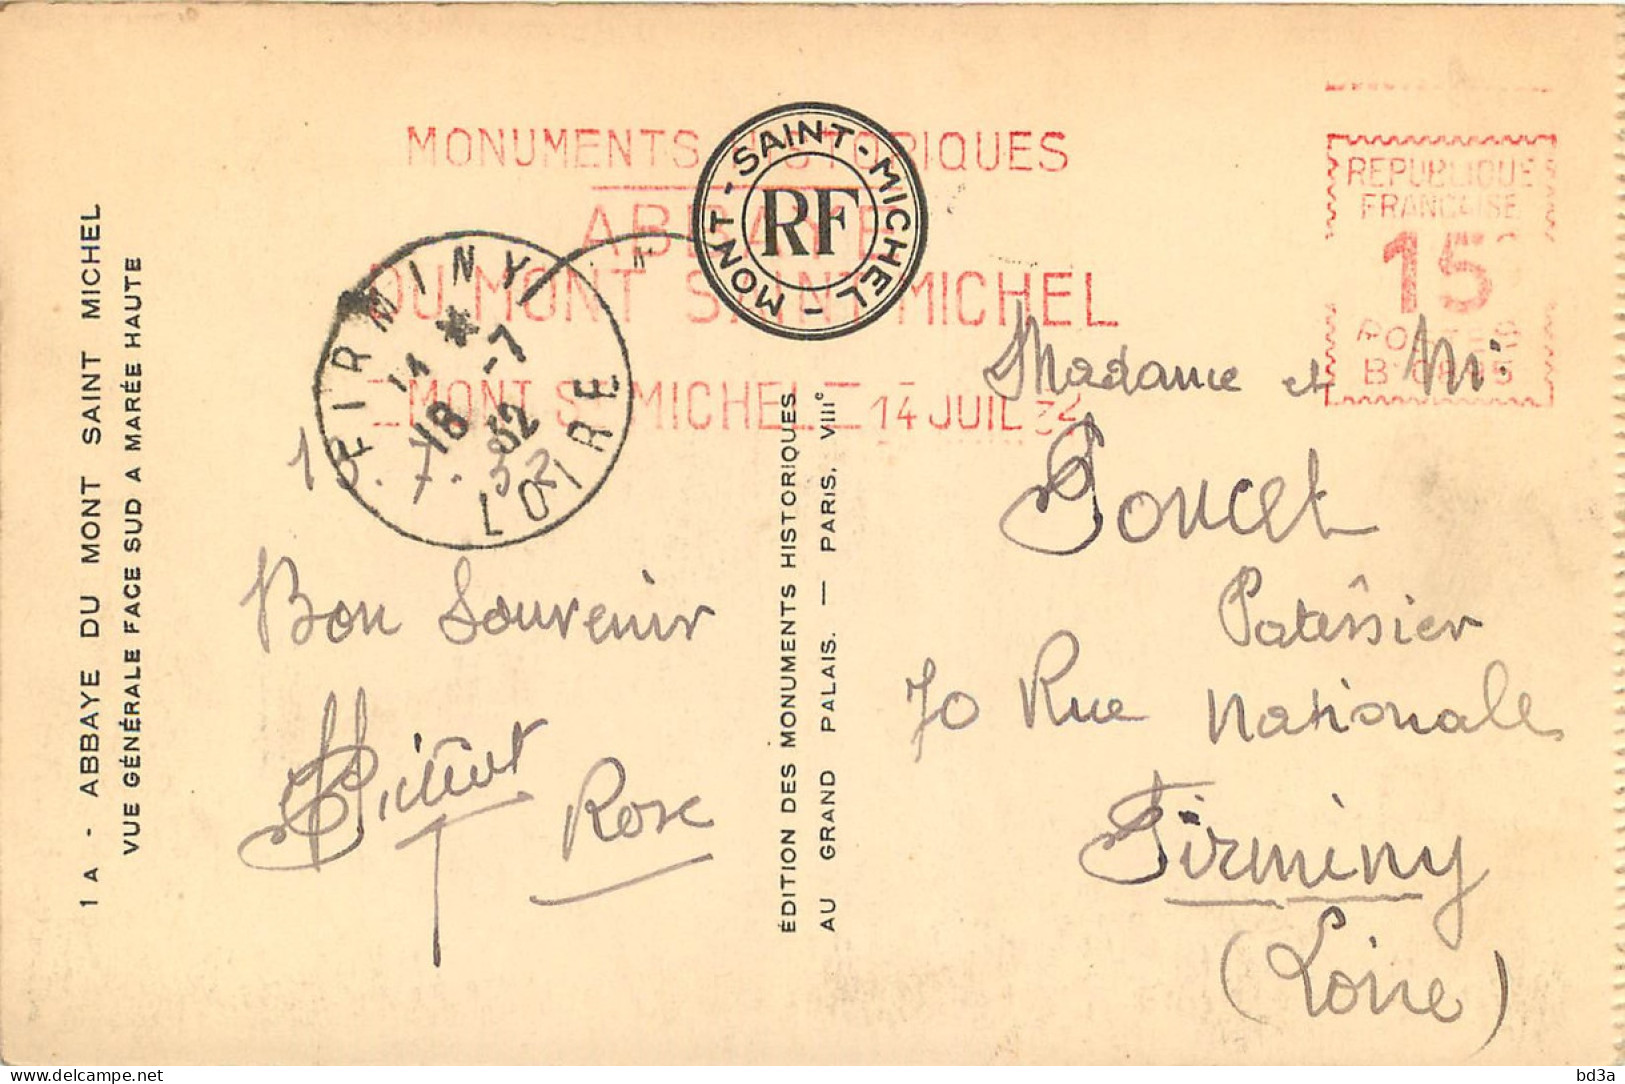 1 A - ABBAYE DU MONT SAINT MICHEL
VUE GÉNÉRALE FACE SUD A MARÉE HAUTE
MONUMENTS HISTORIQUES
ABBAYE
DU MONT SAINT MICHEL
MONT ST MICHEL 14 JUIL 32
MONT-SAINT-MICHEL-
RF
REPUBLIQUE
FRANCAISE
15
POSTES
FIRMINY
LOIRE
18 -7
32
7. 32
Bon Souvenir
Rose
ÉDITION DES MONUMENTS HISTORIQUES
AU GRAND PALAIS. — PARIS. VIIIe
Madame et Mr
Poncet
Patissier
70 Rue Nationale
Firminy
(Loire)
bd3a